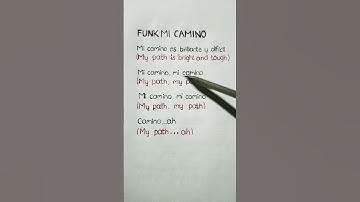 FUNK MI CAMINO
Mi camino es brillante y difícil
(My path is bright and tough)
Mi camino, mi camino
(My path, my
Mi camino, mi camino
(My path, my path)
Camino...ah
(My path...ah)